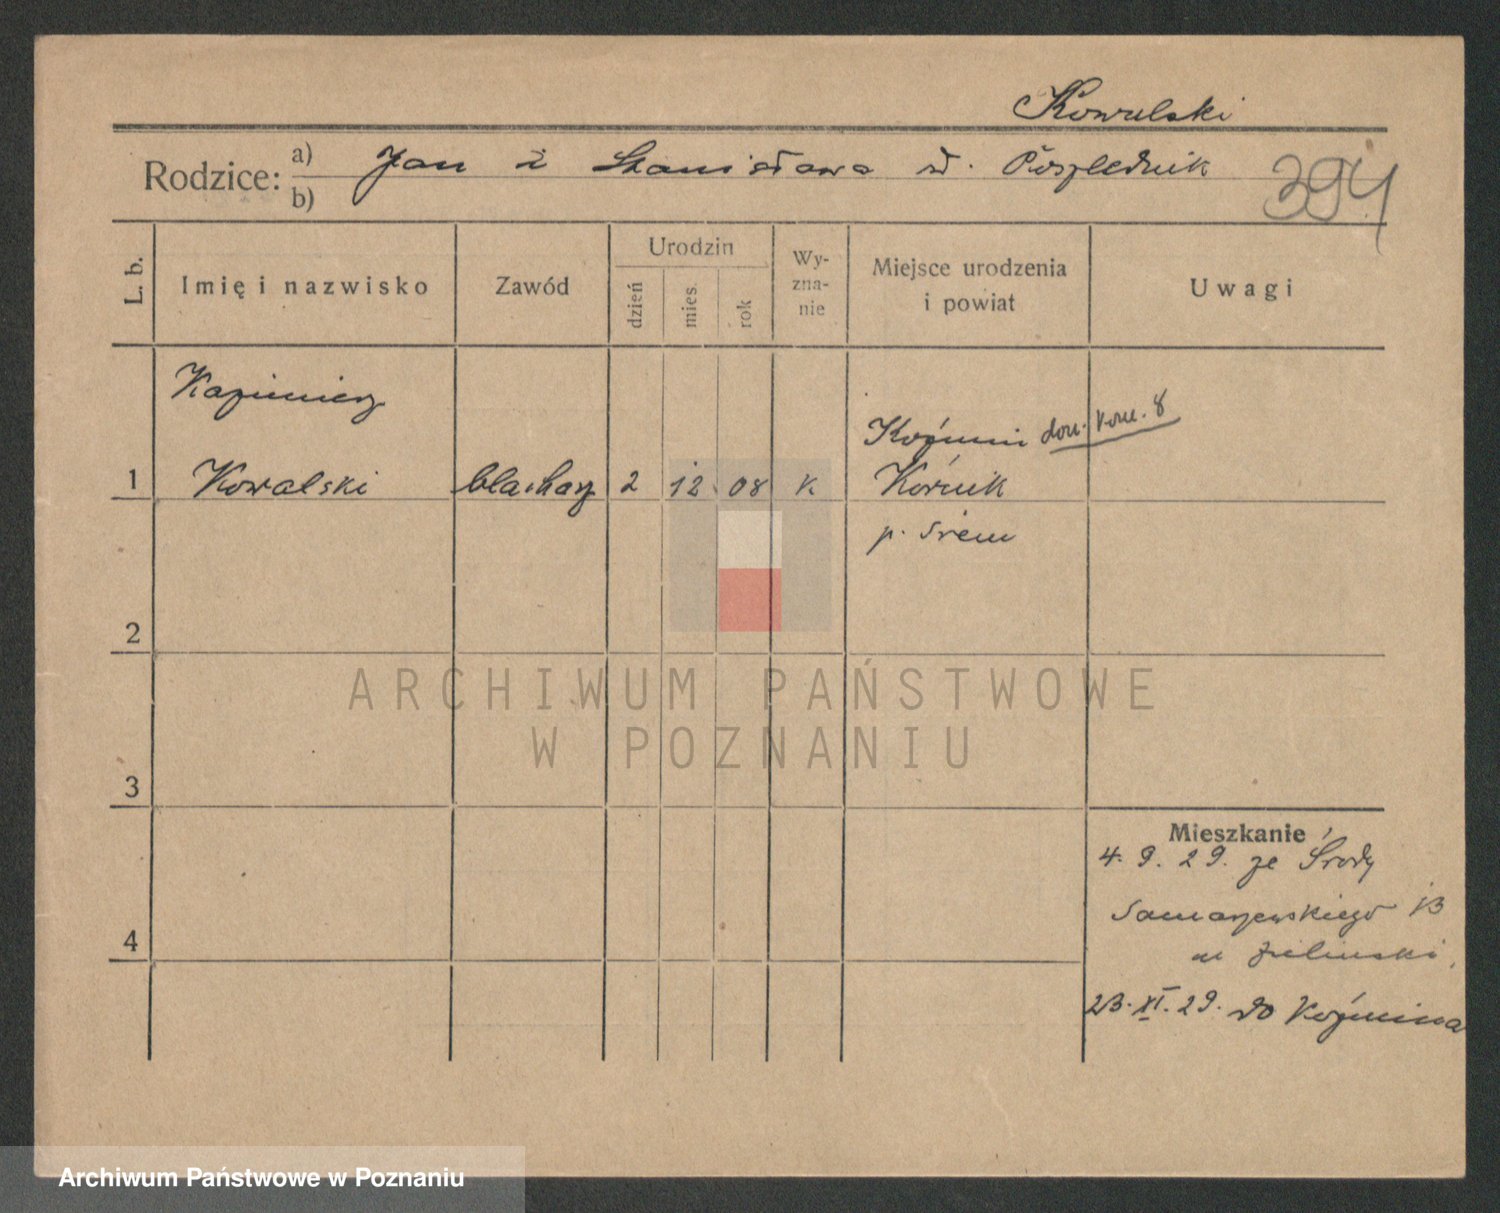 Kowalski
Rodzice: a) Jan i Stanisława d. Pośpiednik
b)
394
L. b. Imię i nazwisko Zawód Urodzin dzień mies. rok Wy-zna-nie Miejsce urodzenia i powiat Uwagi
Kazimierz
Koźmin
1 Kowalski blacharz 2 12 08 k. Kórnik
p. Śrem
2
ARCHIWUM PAŃSTWOWE
W POZNANIU
3
Mieszkanie
4. 9. 29. ze Środy
Samarzewskiego 13
u Zieliński
4
23. XI. 29. do Koźmina
Archiwum Państwowe w Poznaniu